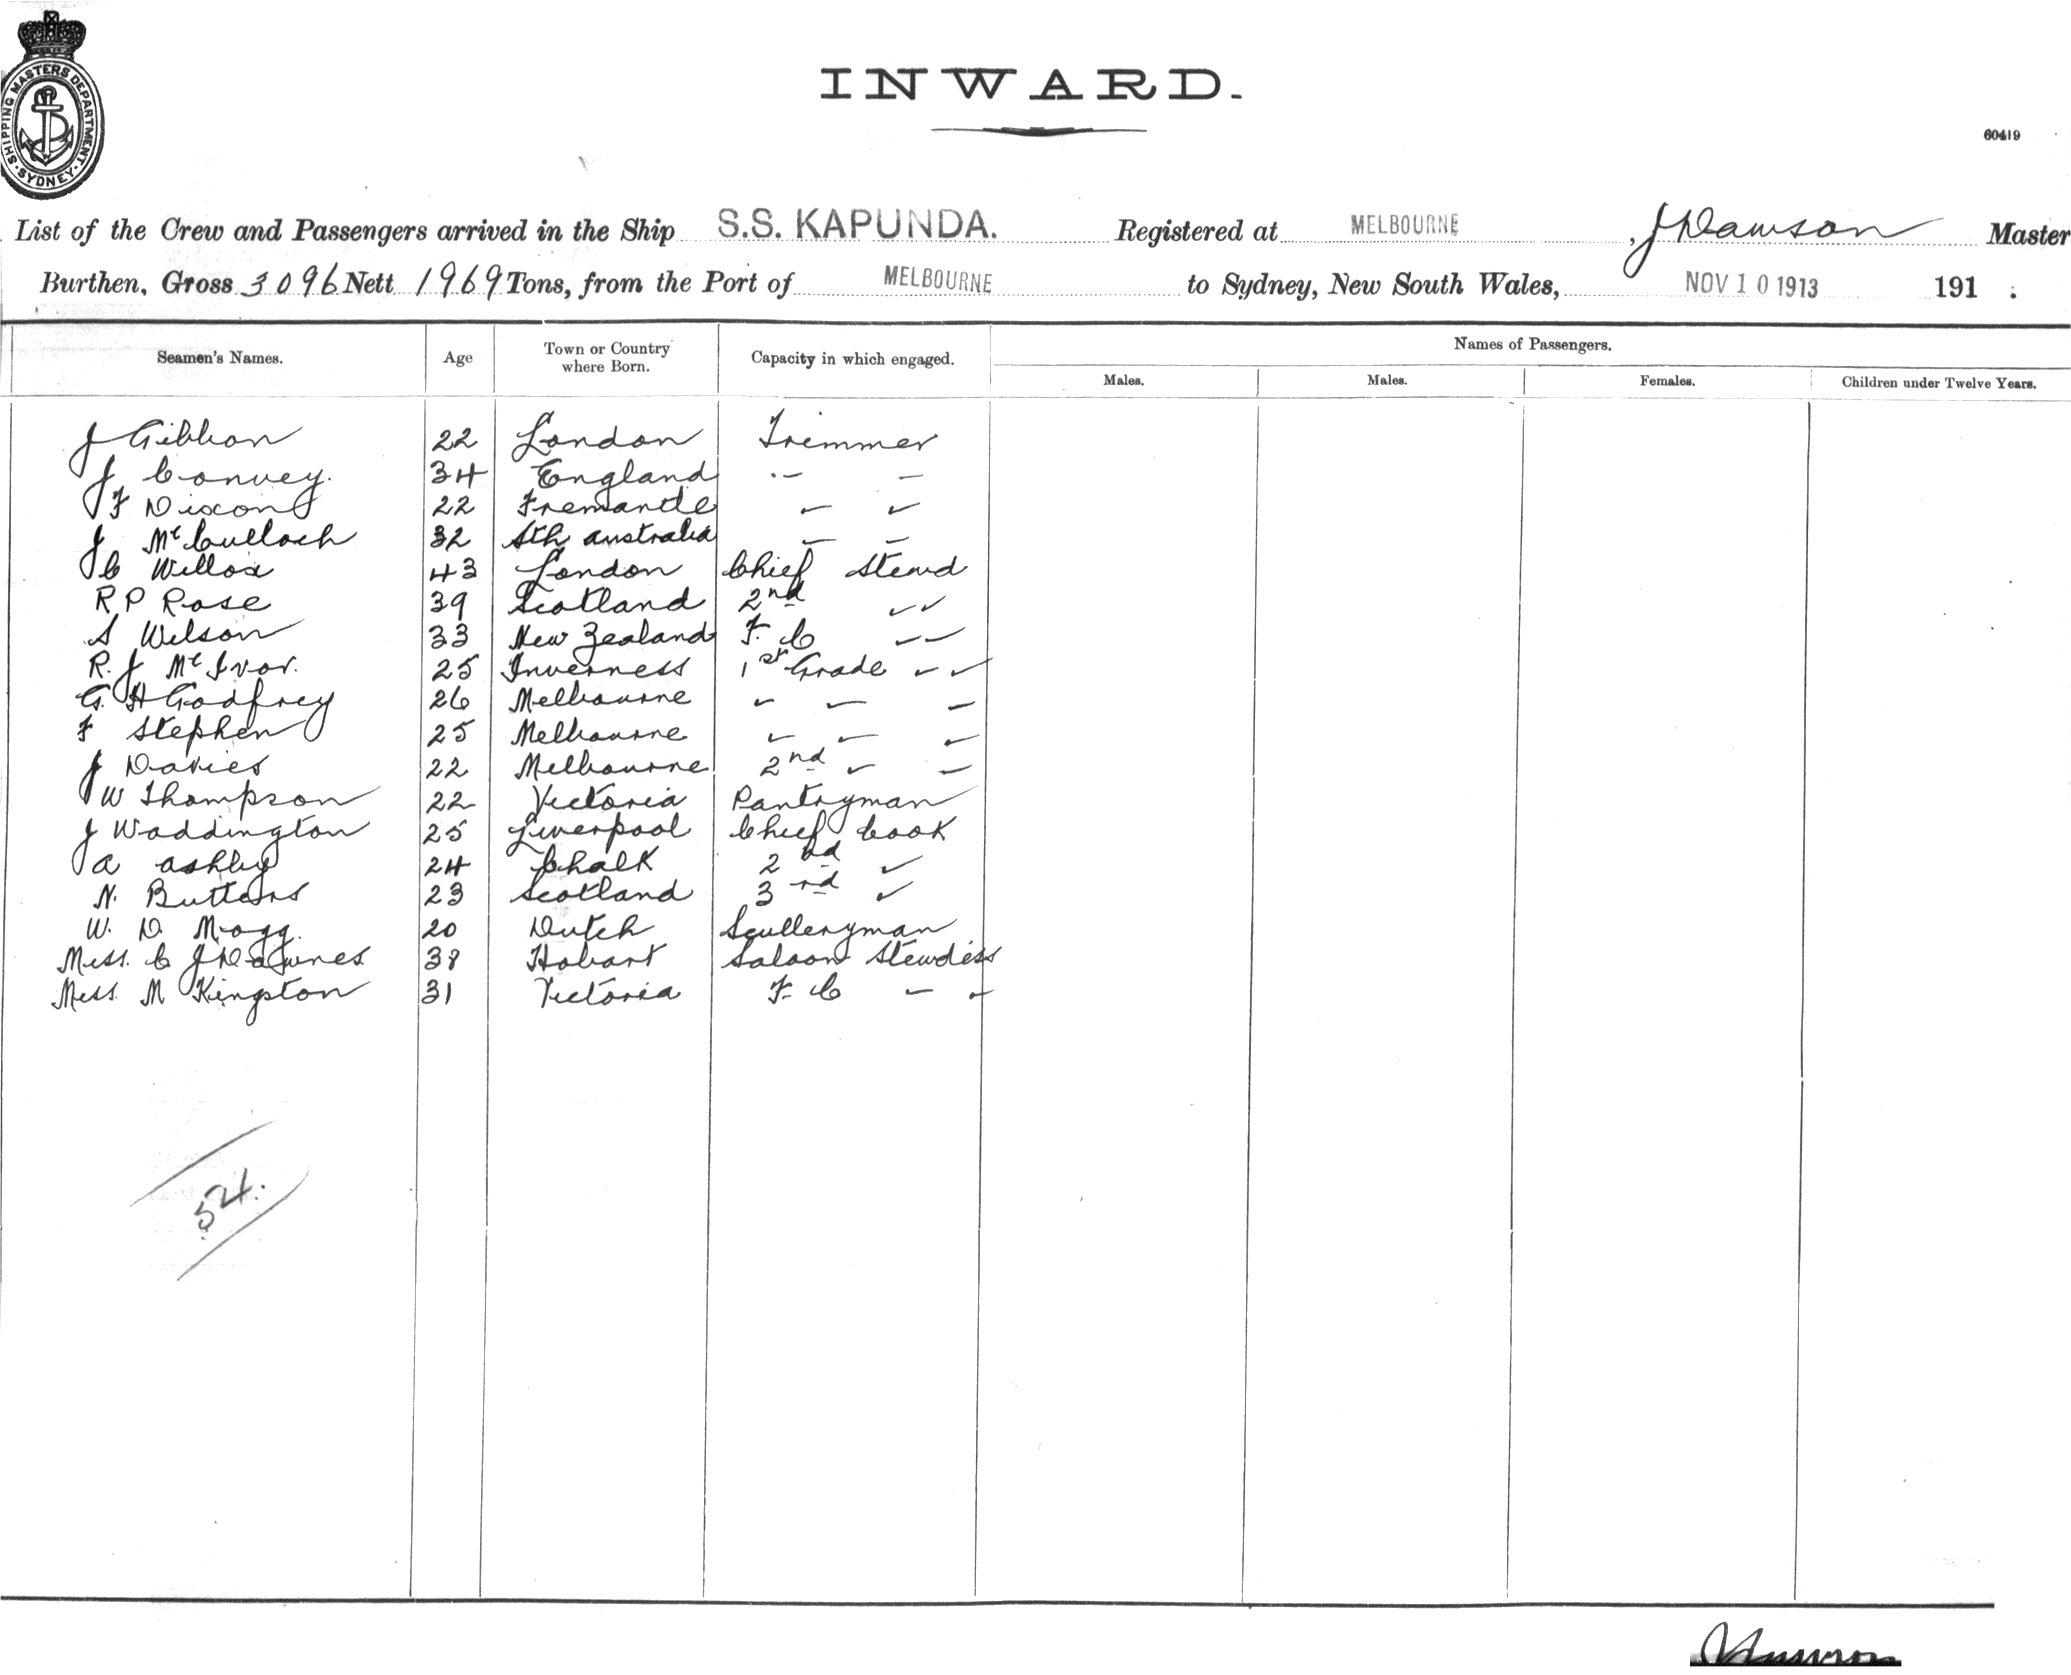 SHIPPING MASTERS DEPARTMENT · SYDNEY ·
INWARD.
60419
List of the Crew and Passengers arrived in the Ship S.S. KAPUNDA. Registered at MELBOURNE, J Dawson Master
Burthen, Gross 3096 Nett 1969 Tons, from the Port of MELBOURNE to Sydney, New South Wales, NOV 10 1913 191 .
Seamen's Names. Age Town or Country where Born. Capacity in which engaged. Names of Passengers.
Males. Males. Females. Children under Twelve Years.
J Gibbon 22 London Trimmer
J. Convey. 34 England - -
F Dixon 22 Fremantle - -
J McCulloch 32 Sth Australia - -
C Willox 43 London Chief Stewd
R P Rose 39 Scotland 2nd " "
S Wilson 33 New Zealand F. C - -
R. J McIvor. 25 Inverness 1st Grade - -
G. H Godfrey 26 Melbourne - - -
F Stephen 25 Melbourne - - -
J Davies 22 Melbourne 2nd - -
W Thompson 22 Victoria Pantryman
J Waddington 25 Liverpool Chief Cook
A Ashby 24 Chalk 2nd -
N. Butters 23 Scotland 3rd -
W. D. Mogg. 20 Dutch Sculleryman
Miss. C J Downes 38 Hobart Saloon Stewdess
Miss. M Kingston 31 Victoria F. C - -
54.